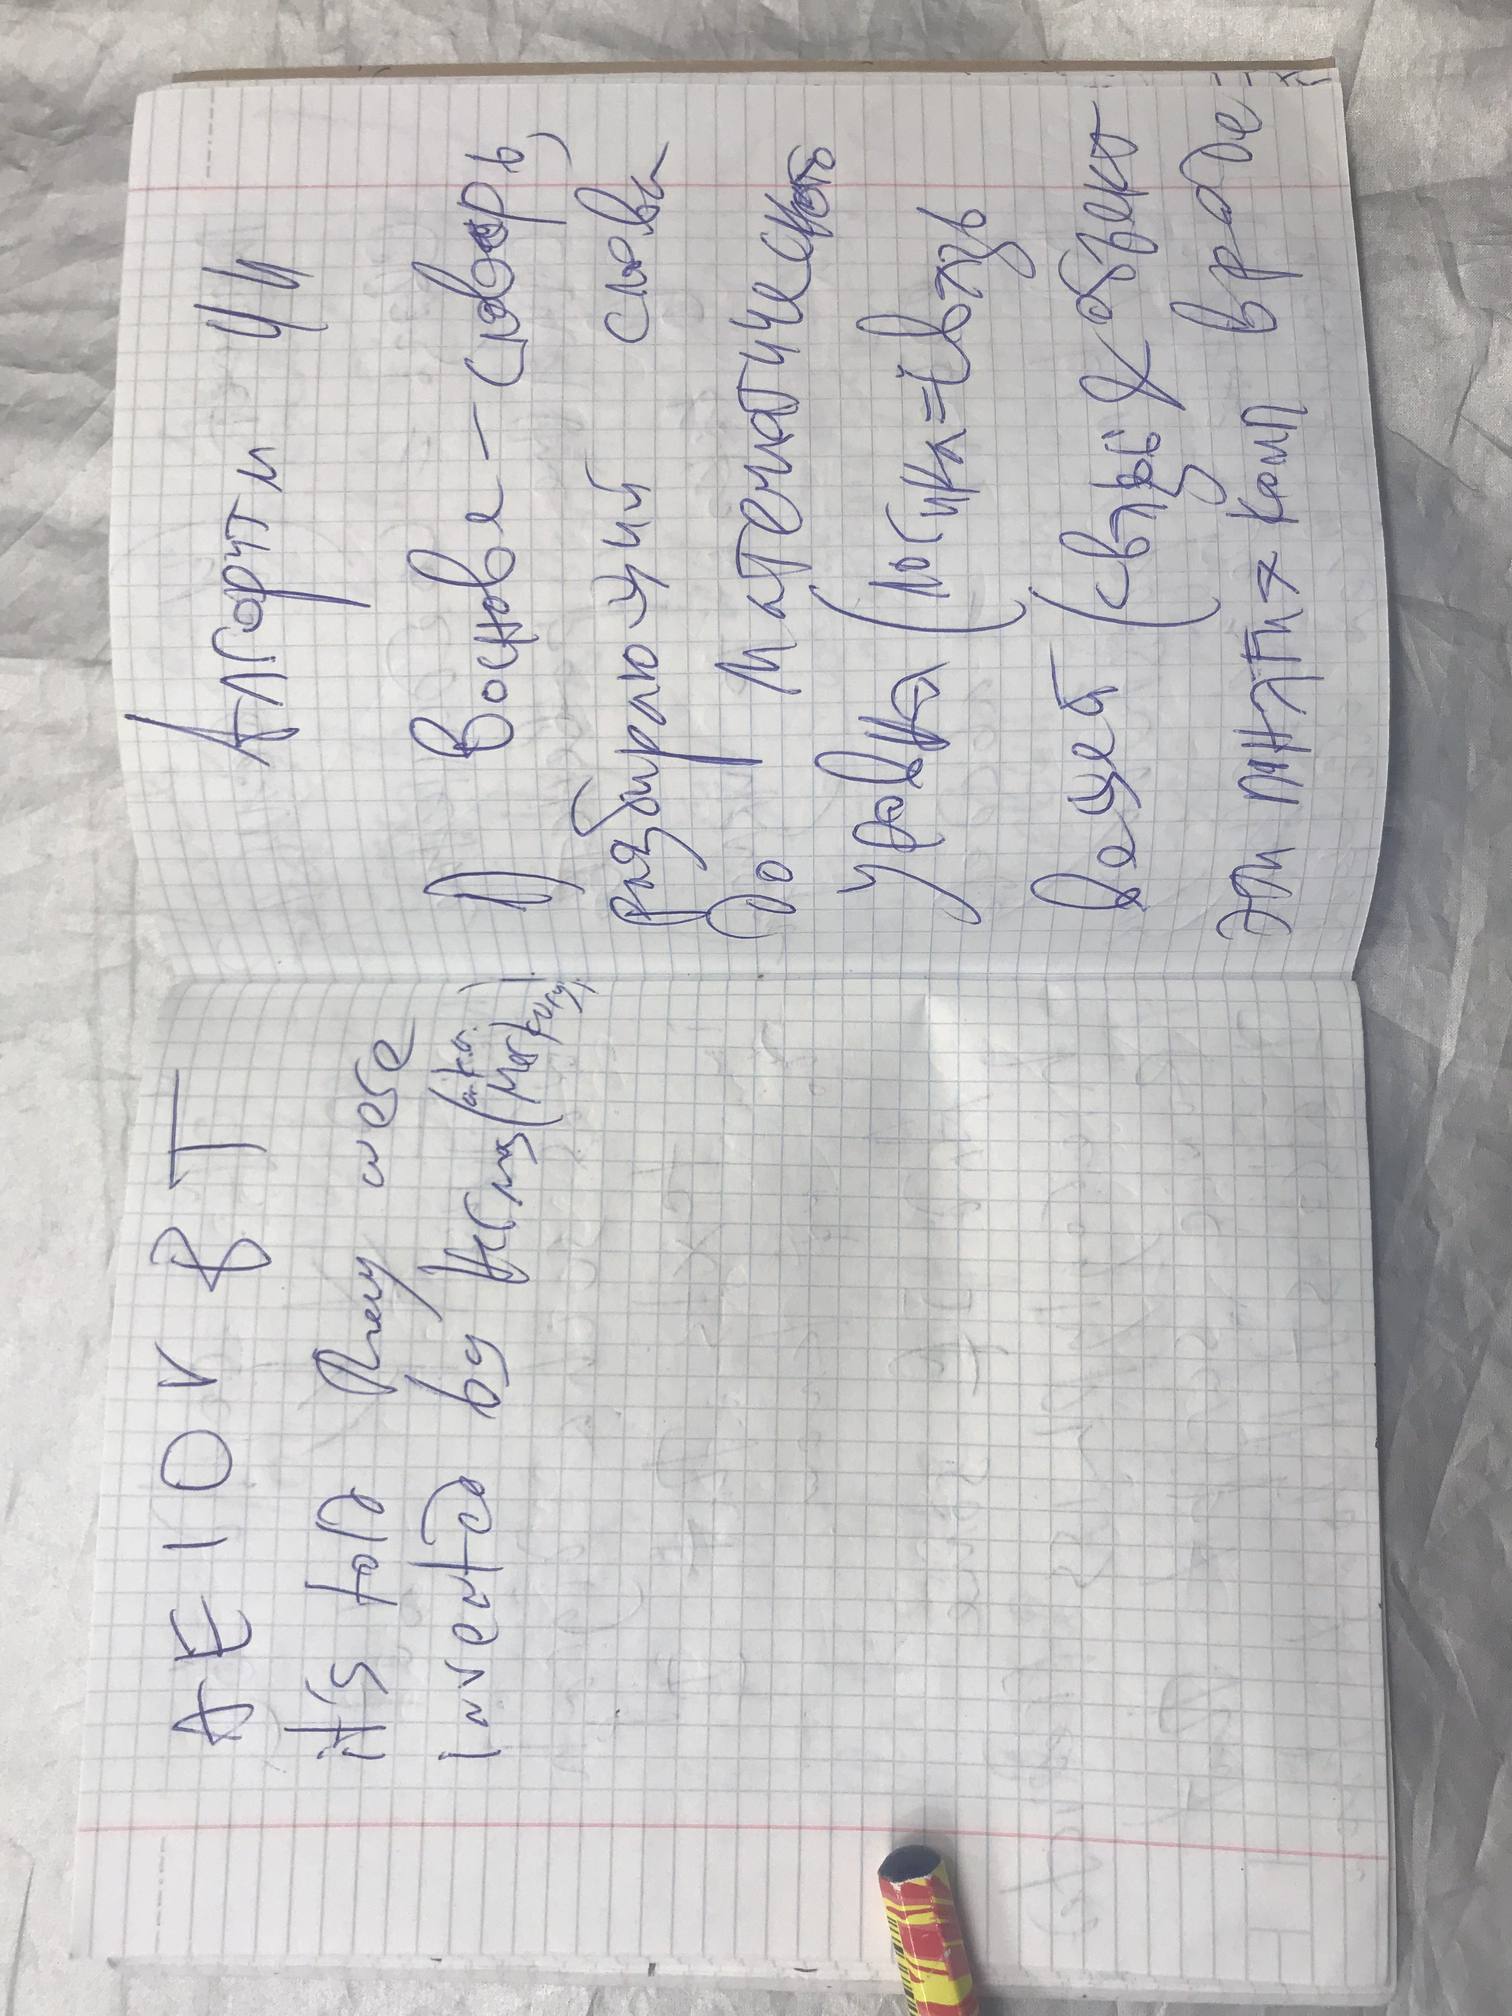 A E I O V B T
it's told they were
invented by Hermas (a.k.a.
(Merkury)
Алгортм ИИ
1) В основе - словарь,
разбирающий слова
до математического
уровня (логика = связь
вещей (связь & объект
эти пнятия комп вроде =